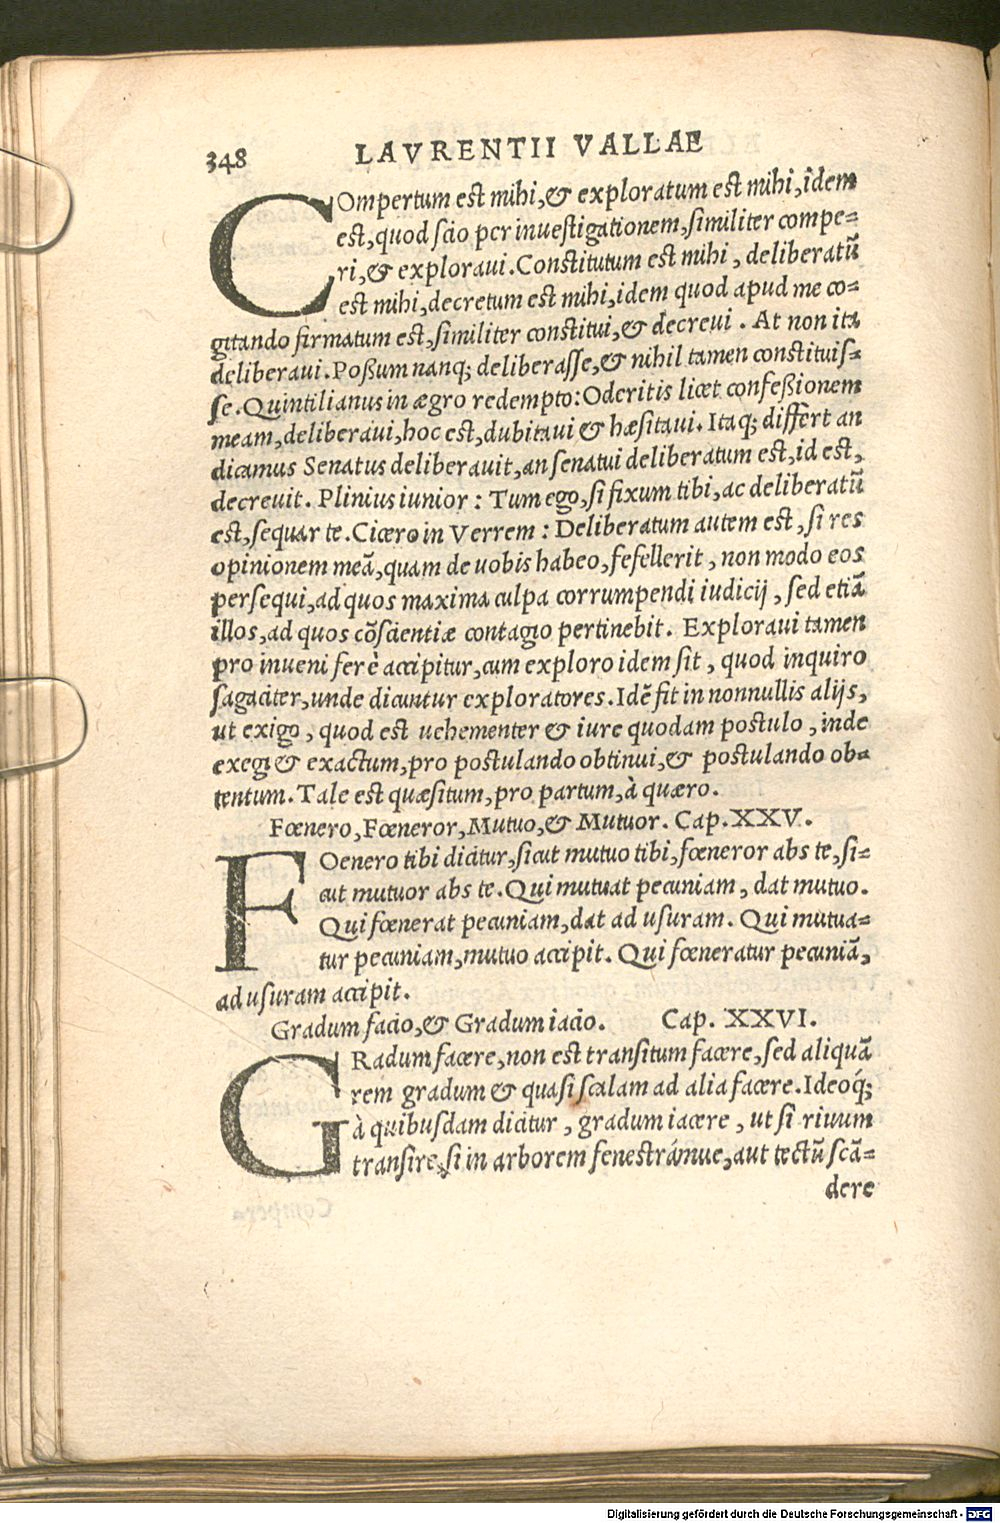 348 LAVRENTII VALLAE
COmpertum est mihi,& exploratum est mihi,idem
est,quod scio per inuestigationem,similiter compe=
ri,& exploraui.Constitutum est mihi, deliberatũ
est mihi,decretum est mihi,idem quod apud me co=
gitando firmatum est,similiter constitui,& decreui. At non ita
deliberaui.Possum nanq; deliberasse,& nihil tamen constituis=
se.Quintilianus in ægro redempto:Oderitis licet confessionem
meam,deliberaui,hoc est,dubitaui & hæsitaui.Itaq; differt an
dicamus Senatus deliberauit,an senatui deliberatum est,id est,
decreuit. Plinius iunior: Tum ego,si fixum tibi,ac deliberatũ
est,sequar te.Cicero in Verrem: Deliberatum autem est, si res
opinionem meã,quam de uobis habeo,fefellerit, non modo eos
persequi,ad quos maxima culpa corrumpendi iudicij, sed etiã
illos,ad quos cõscientiæ contagio pertinebit. Exploraui tamen
pro inueni ferè accipitur,cum exploro idem sit, quod inquiro
sagaciter,unde dicuntur exploratores.Idẽ fit in nonnullis alijs,
ut exigo, quod est uehementer & iure quodam postulo, inde
exegi & exactum,pro postulando obtinui,& postulando ob=
tentum.Tale est quæsitum,pro partum,à quæro.
Fœnero, Fœneror, Mutuo,& Mutuor. Cap.XXV.
FOenero tibi dicitur,sicut mutuo tibi,fœneror abs te,si=
cut mutuor abs te.Qui mutuat pecuniam, dat mutuo.
Qui fœnerat pecuniam,dat ad usuram. Qui mutua=
tur pecuniam,mutuo accipit. Qui fœneratur pecuniã,
ad usuram accipit.
Gradum facio,& Gradum iacio. Cap. XXVI.
GRadum facere,non est transitum facere,sed aliquã
rem gradum & quasi scalam ad alia facere.Ideoq́;
à quibusdam dicitur, gradum iacere, ut si riuum
transire,si in arborem fenestrámue,aut tectũ scã=
dere
Digitalisierung gefördert durch die Deutsche Forschungsgemeinschaft - DFG